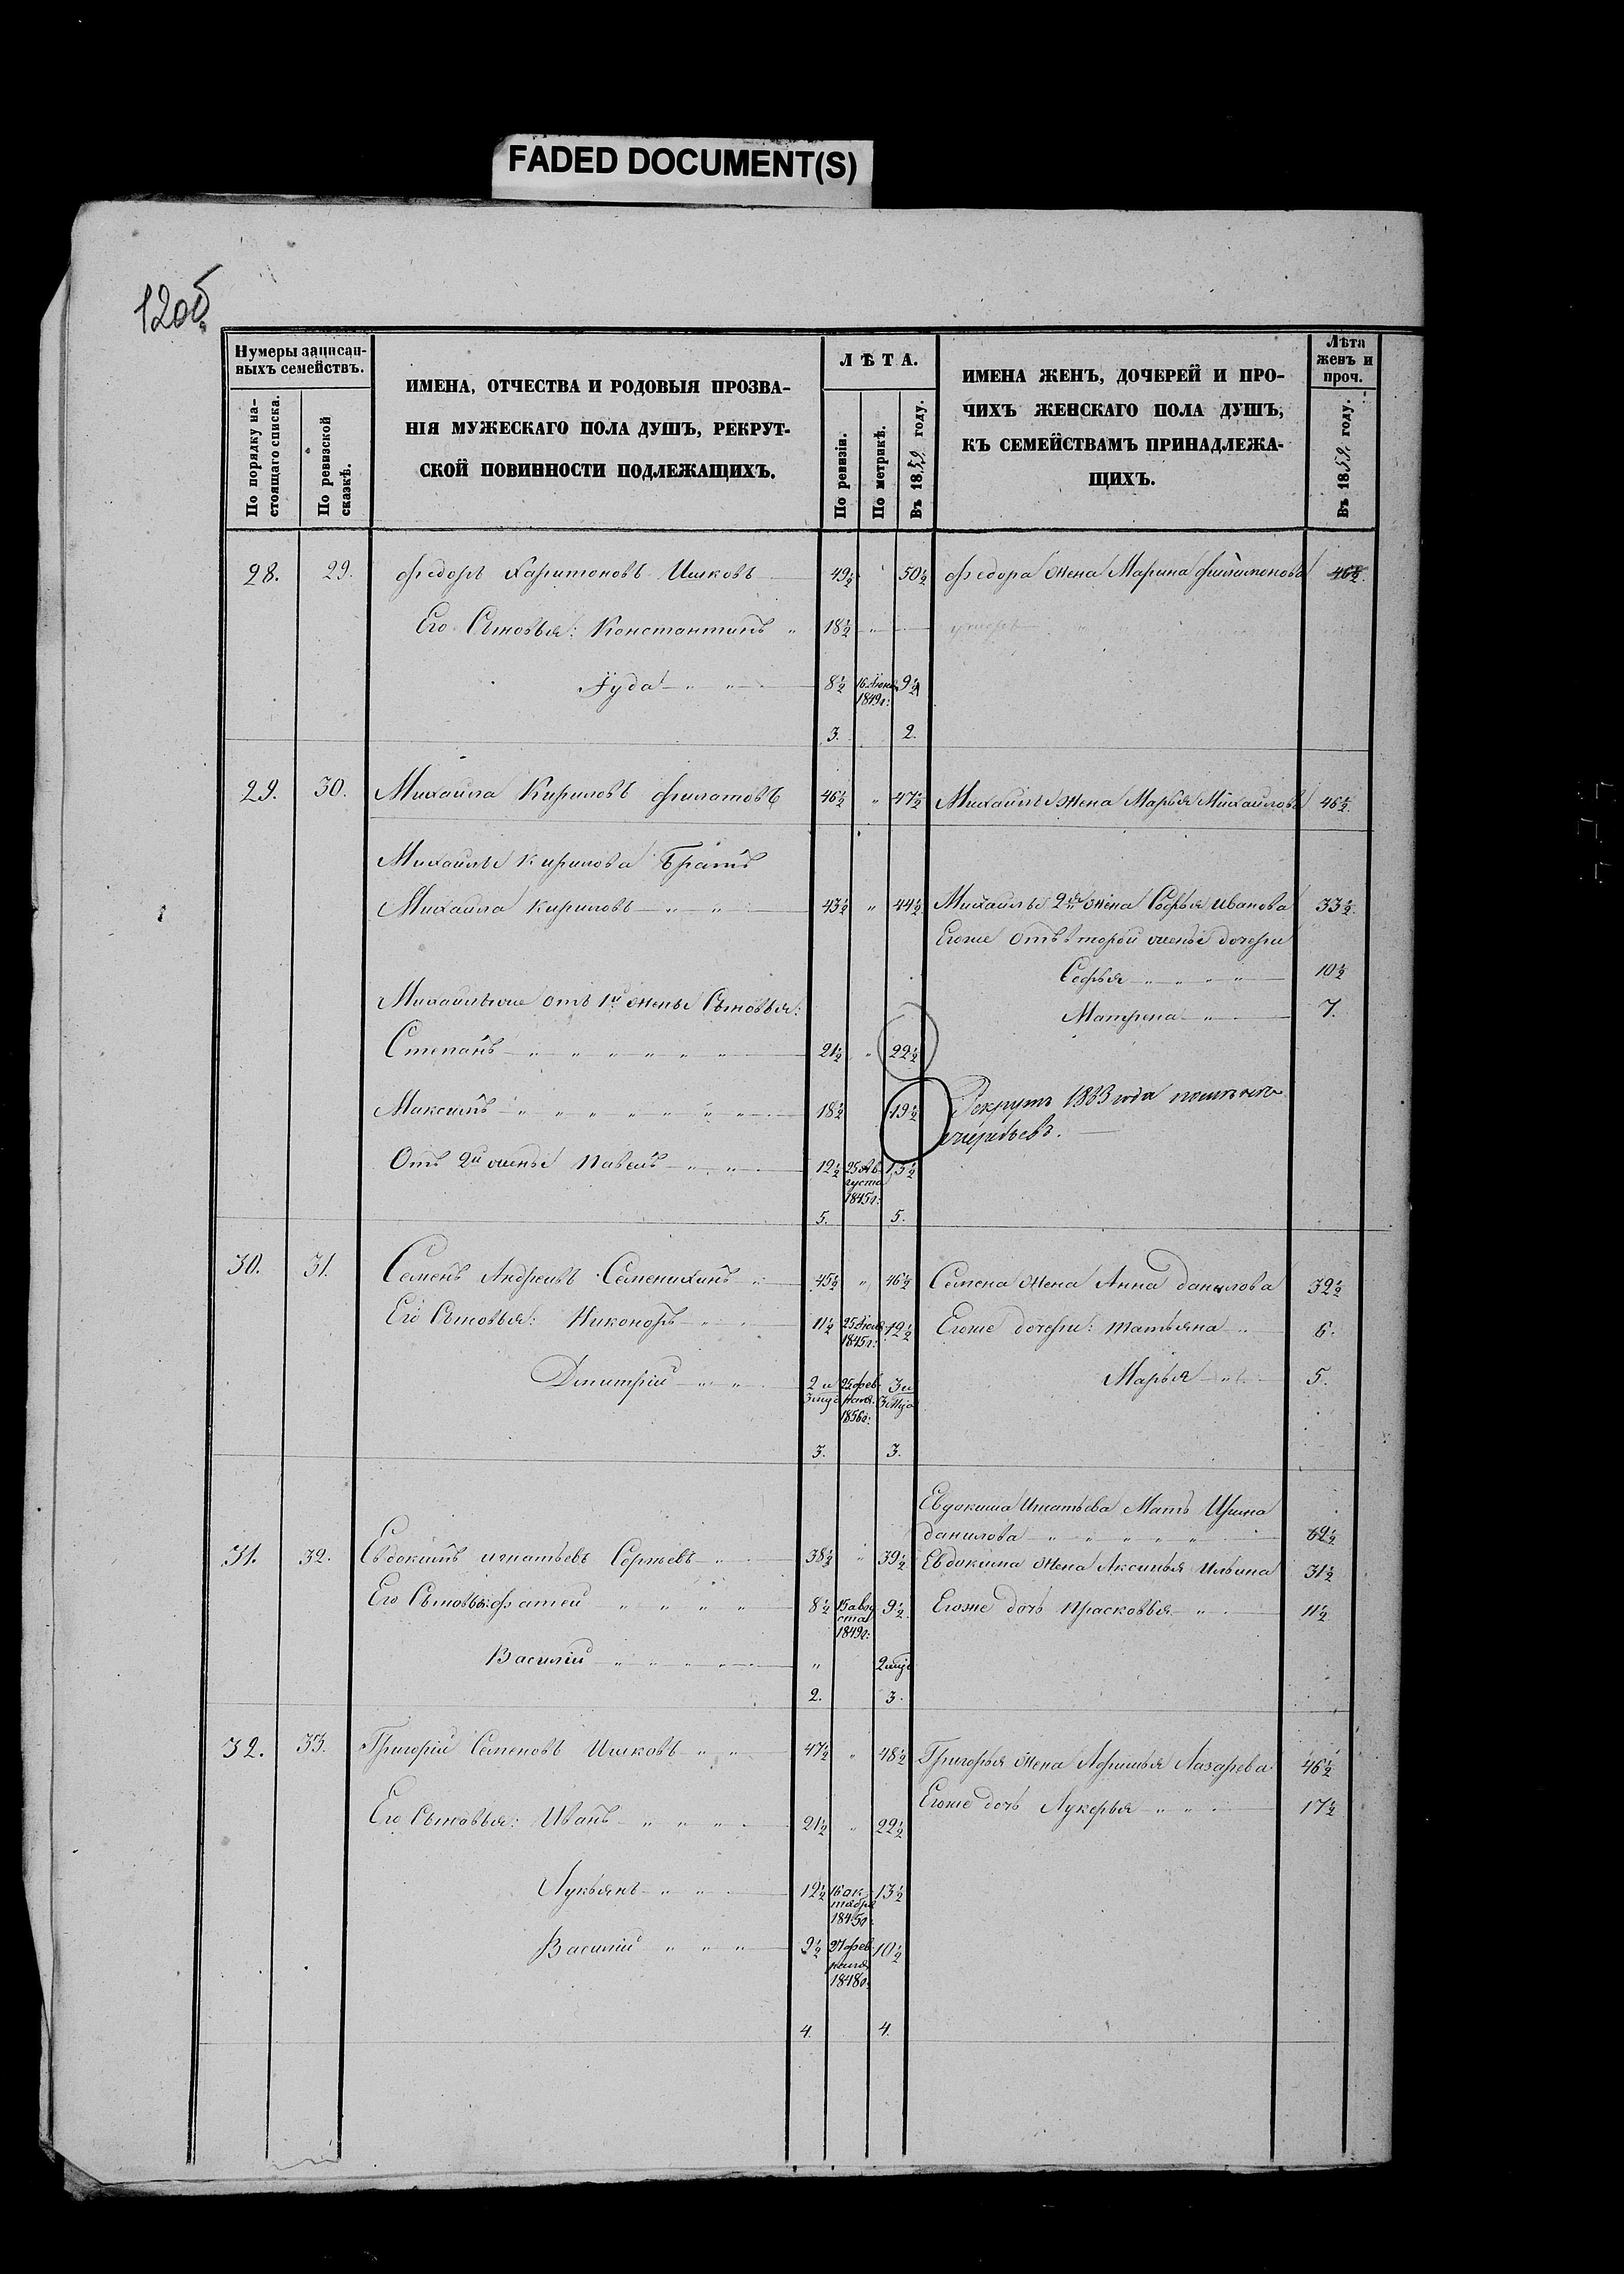 FADED DOCUMENT(S)
12об.
Нумеры записан-
ныхъ семействъ.
По порядку на-
стоящаго списка.
По ревизской
сказкѣ.
ИМЕНА, ОТЧЕСТВА И РОДОВЫЯ ПРОЗВА-
НІЯ МУЖЕСКАГО ПОЛА ДУШЪ, РЕКРУТ-
СКОЙ ПОВИННОСТИ ПОДЛЕЖАЩИХЪ.
ЛѢТА.
По ревизіи.
По метрикѣ.
Въ 1859 году.
ИМЕНА ЖЕНЪ, ДОЧЕРЕЙ И ПРО-
ЧИХЪ ЖЕНСКАГО ПОЛА ДУШЪ,
КЪ СЕМЕЙСТВАМЪ ПРИНАДЛЕЖА-
ЩИХЪ.
Лѣта
женъ и
проч.
Въ 1859 году.
28. 29. Федоръ Харитоновъ Ишковъ 49½ 50½ Федора жена Марина Филимонова 46½.
Его Сыновья: Константинъ " 18½ " —
Іуда " " 8½ 9½
1849г:
3. 2.
29. 30. Михаила Кириловъ Филатовъ 46½ " 47½ Михаилы жена Марья Михайлова 46½
Михаилы Кирилова Братъ
Михаила Кириловъ " " 43½ " 44½ Михаилы 2я жена Софья Иванова 33½
Егоже отъ второй жены дочери
Софья " " " " 10½
Михаилыже отъ 1й жены Сыновья:
Матрена " 7.
Степанъ " " " " " " 21½ " 22½
Максимъ " " " " " " " 18½ 19½ Рекрутъ 1883 года
Отъ 2й жены Павелъ " " 12½ 25 Ав- 13½
густа
1845г:
5. 5.
30. 31. Семенъ Андреевъ Семенихинъ " 45½ " 46½ Семена жена Анна Данилова 32½
Его Сыновья: Никоноръ " " 11½ 12½ Егоже дочери: Татьяна " 6.
1845г:
Дмитрій " " 2 и 25 фев- 3 и Марья " 5.
раля
1856г:
3. 3.
Евдокима Игнатьева Мать Ирина
Данилова " " " " " 62½
31. 32. Евдокимъ Игнатьевъ Сергѣевъ " 38½ " 39½ Евдокима жена Аксинья Ильина 31½
Его Сыновья: Фатей " " " " 8½ 15 авгу 9½ Егоже дочь Прасковья " 11½
ста
1849г:
Василій " " " " " " 2 мѣс
2. 3.
32. 33. Григорій Семеновъ Ишковъ " " 47½ " 48½ Григорья жена Афимья Лазарева 46½
Егоже дочь Лукерья " " 17½
Его Сыновья: Иванъ " " " " 21½ " 22½
Лукьянъ " " 12½ 16 ок- 13½
тября
1845г:
Василій " " " 9½ 27 фев- 10½
раля
1848г:
4. 4.